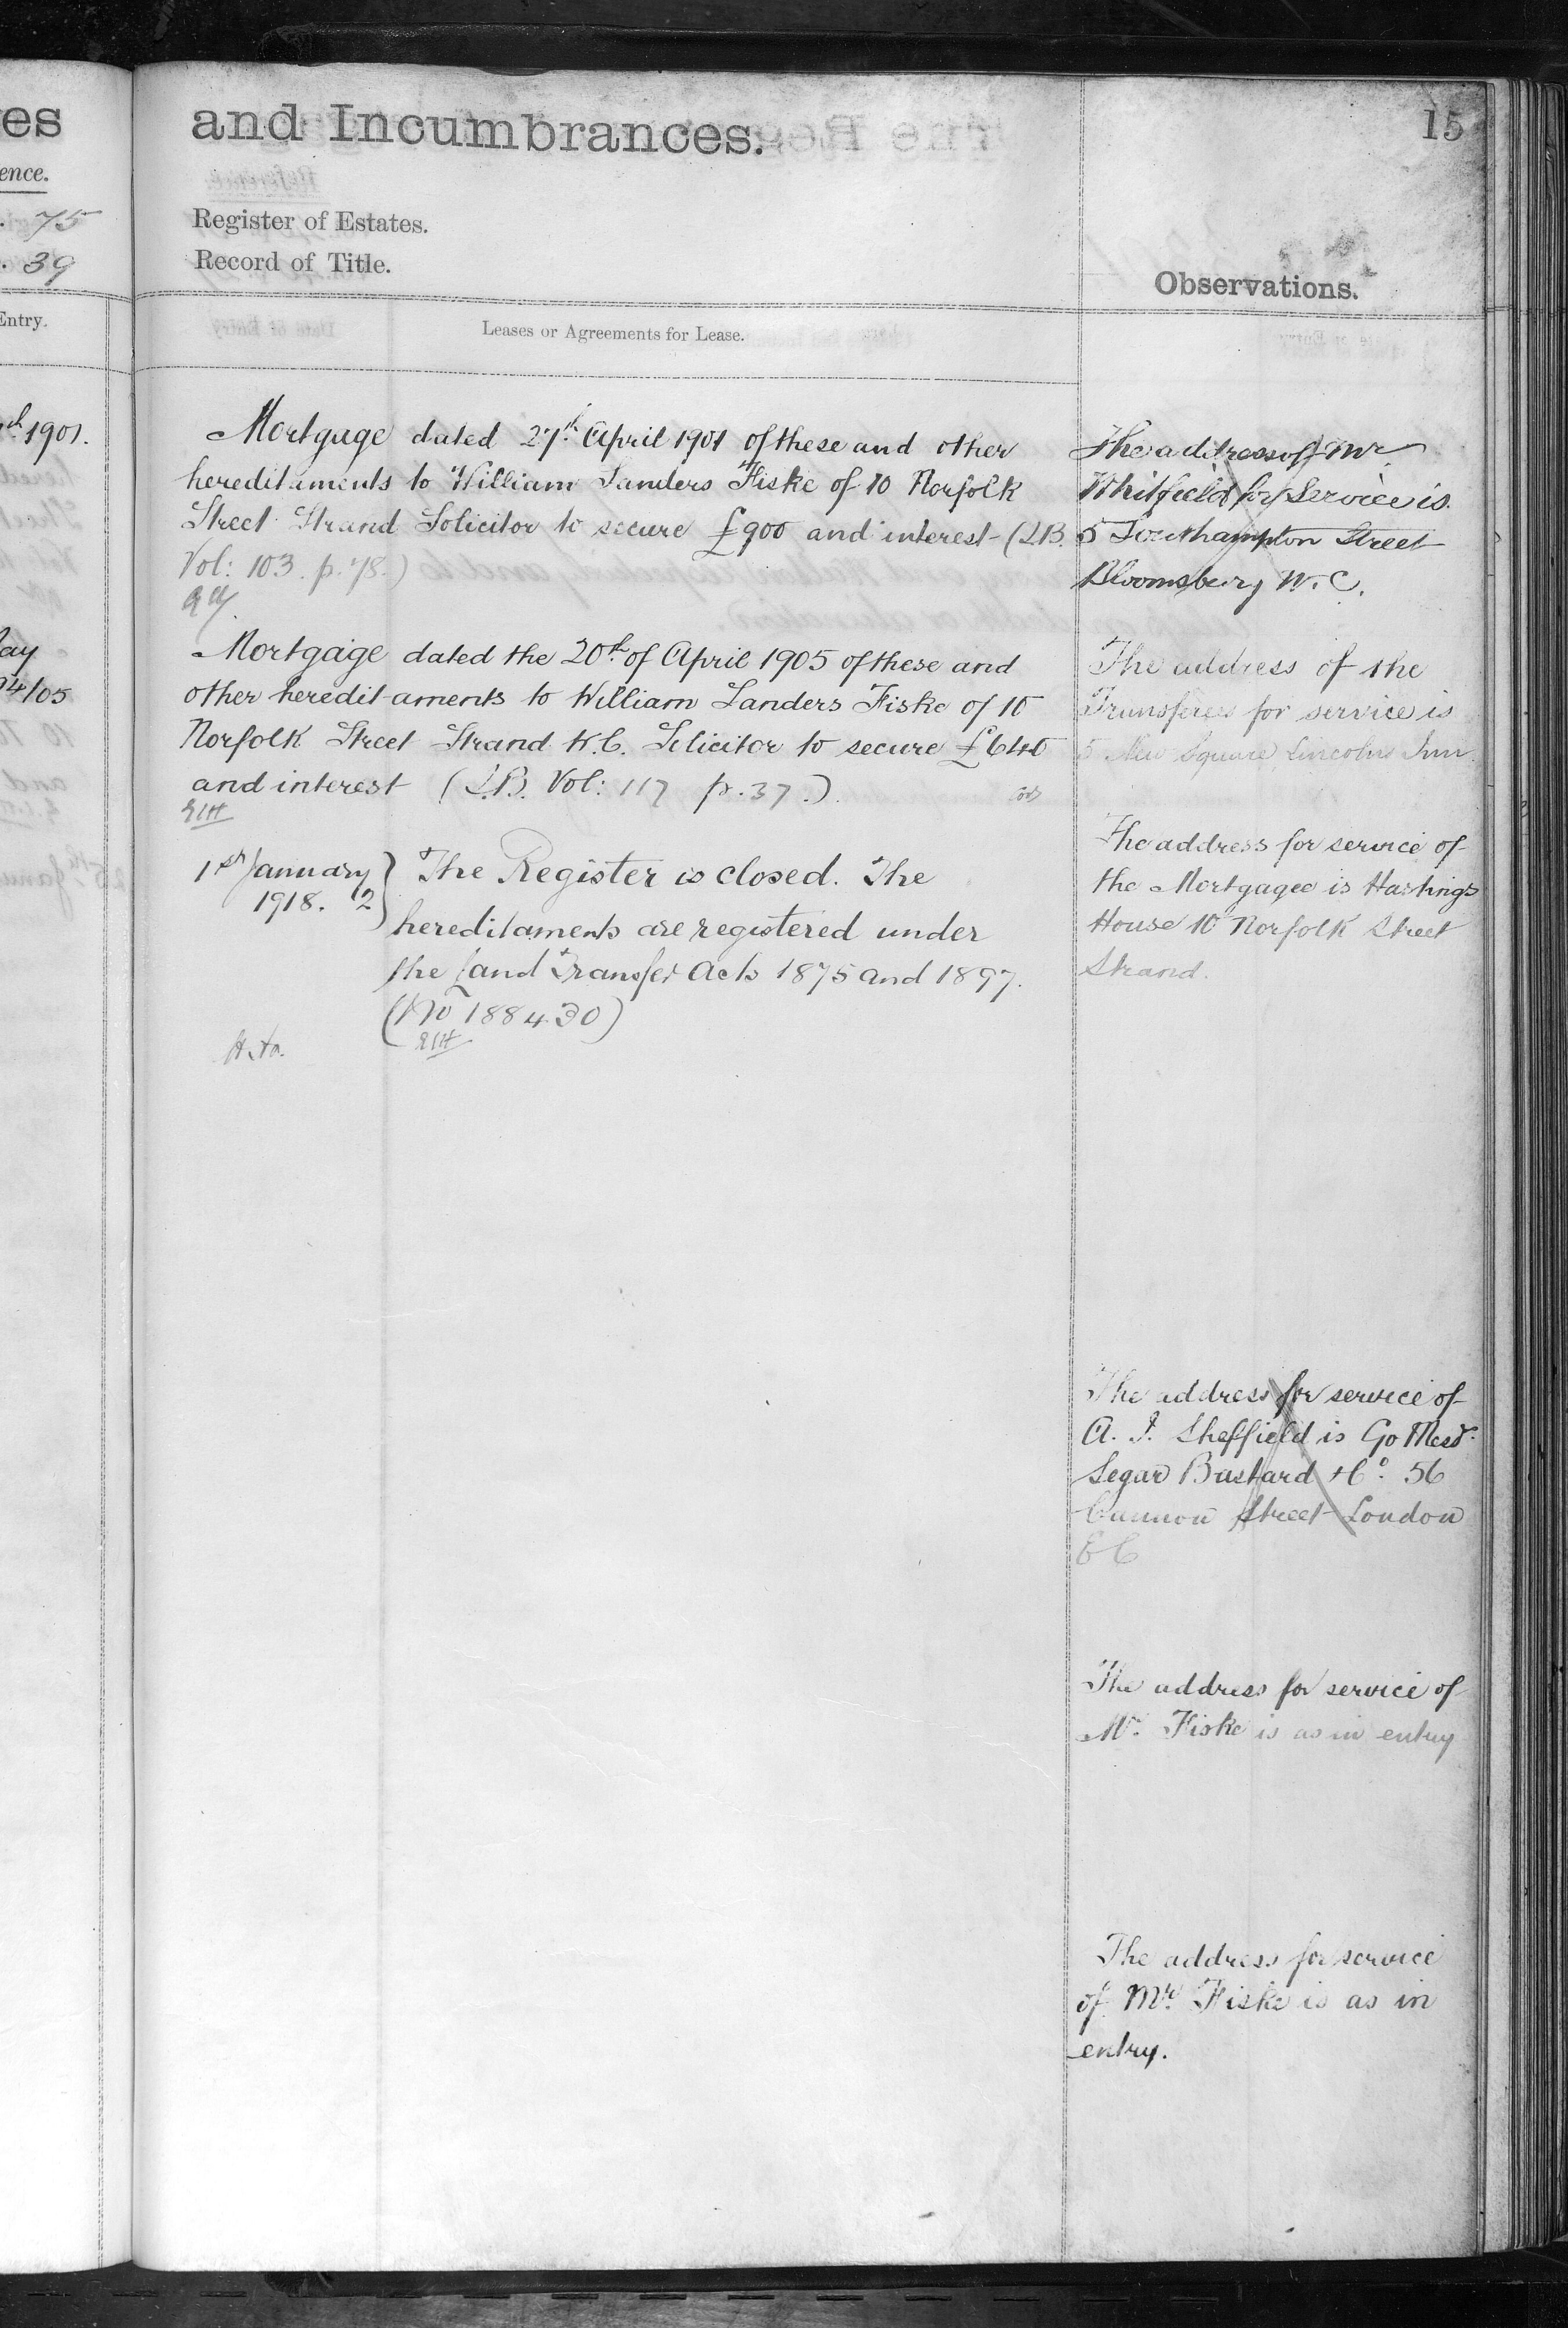 es
ence.
75
. 39
Entry.
1901.
ay
4/05
and Incumbrances.
Register of Estates.
Record of Title.
Leases or Agreements for Lease.
Mortgage dated 27th April 1901 of these and other
hereditaments to William Sanders Fiske of 10 Norfolk
Street Strand Solicitor to secure £900 and interest - (I.B.
Vol: 103. p. 78.)
Mortgage dated the 20th of April 1905 of these and
other heredit-aments to William Sanders Fiske of 10
Norfolk Street Strand W.C. Solicitor to secure £640
and interest (I.B. Vol: 117 p. 37.)
EIH
1st January
1918. 12
The Register is closed. The
hereditaments are registered under
the Land Transfer Acts 1875 and 1897.
(No 188430)
EIH
15
Observations.
The address of Mr
Whitfield for Service is
5 Southampton Street
Bloomsbury W.C.
The address of the
Transferees for service is
5 New Square Lincolns Inn.
The address for service of
the Mortgagee is Hastings
House 10 Norfolk Street
Strand.
The address for service of
A. J. Sheffield is Go Messrs
Segar Bastard & Co. 56
Cannon Street London
E C
The address for service of
Mr. Fiske is as in entry
The address for service
of Mr. Fiske is as in
entry.